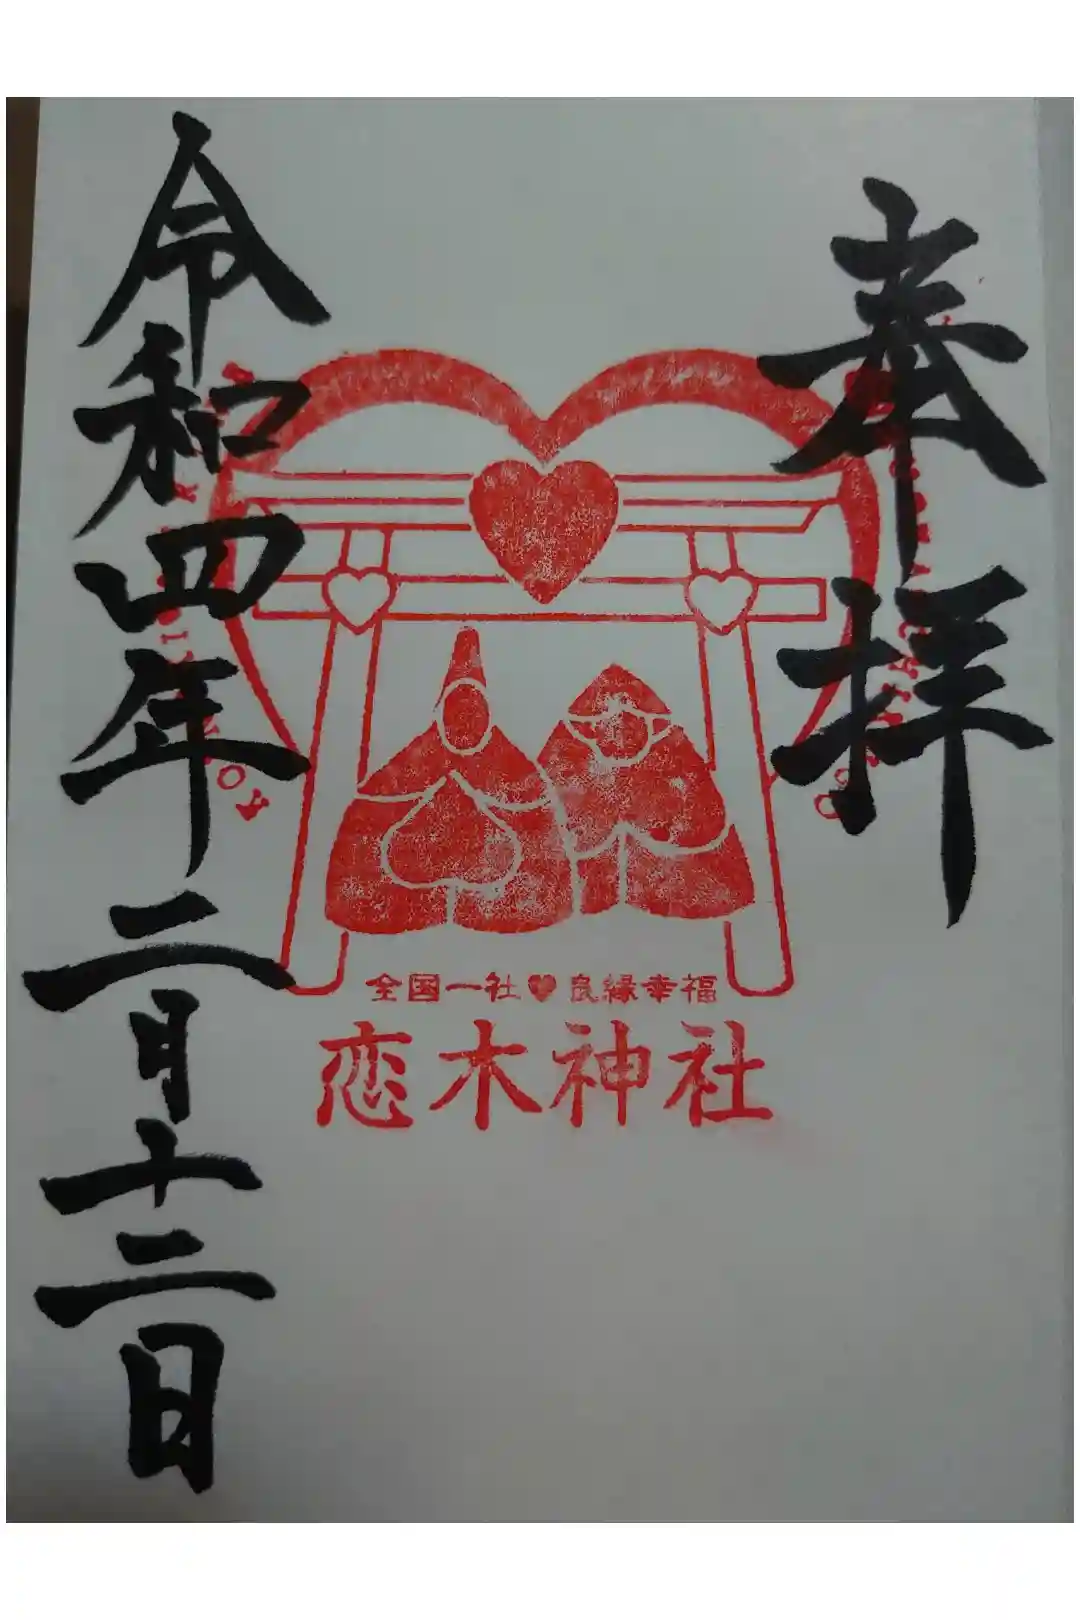 奉拝
全国一社♥良縁幸福
恋木神社
令和四年二月十二日